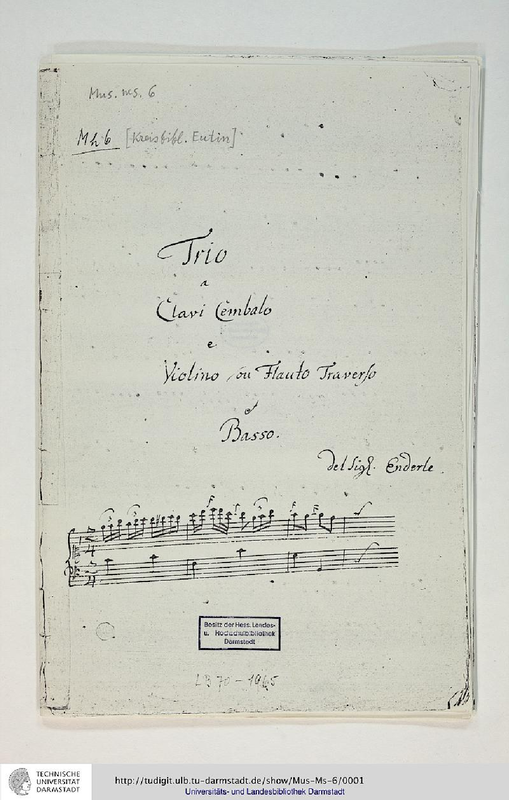 Mus. ms. 6
Mh 6 [Kreisbibl. Eutin]
Trio
a
Clavi Cembalo
e
Violino, ou Flauto Traverso
e
Basso.
del Sigr. Enderle.
2/4
2/4
Besitz der Hess. Landes-
u. Hochschulbibliothek
Darmstadt
LB 70 - 1965
TECHNISCHE
UNIVERSITÄT
DARMSTADT
http://tudigit.ulb.tu-darmstadt.de/show/Mus-Ms-6/0001
Universitäts- und Landesbibliothek Darmstadt